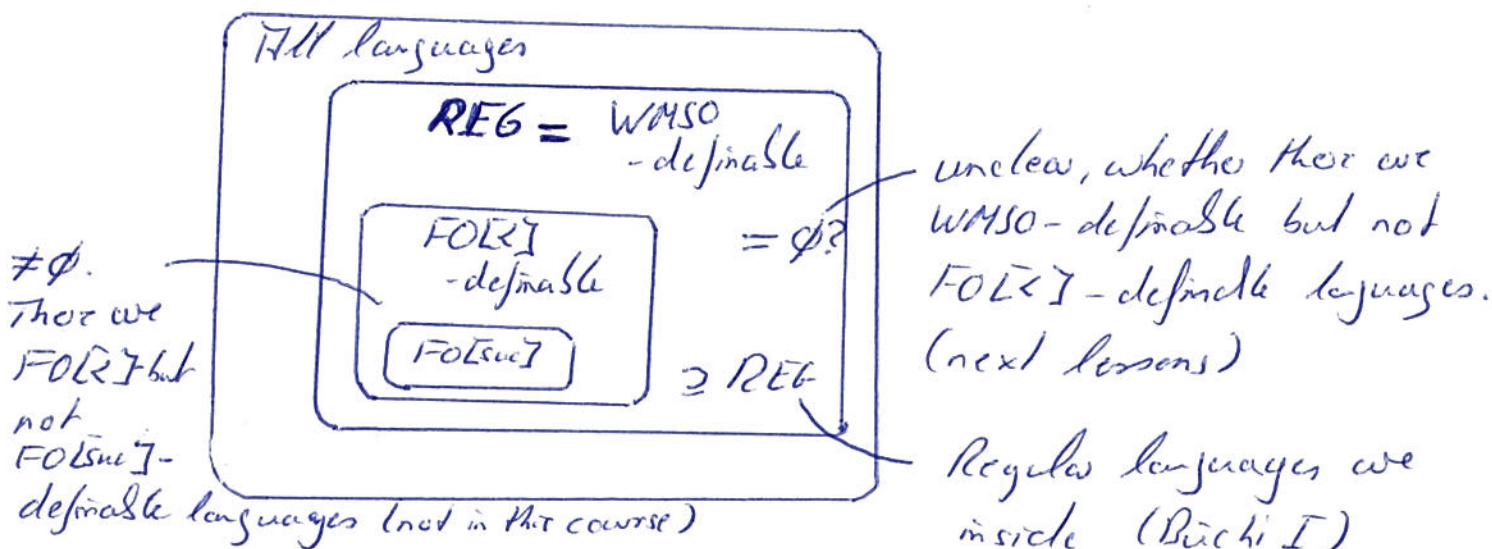 All languages
REG = WMSO
-definable
FO[<]
-definable
= ∅?
FO[suc]
⊇ REG
≠∅.
There are
FO[<] but
not
FO[suc]-
definable languages (not in this course)
unclear, whether there are
WMSO-definable but not
FO[<]-definable languages.
(next lessons)
Regular languages are
inside (Büchi I)